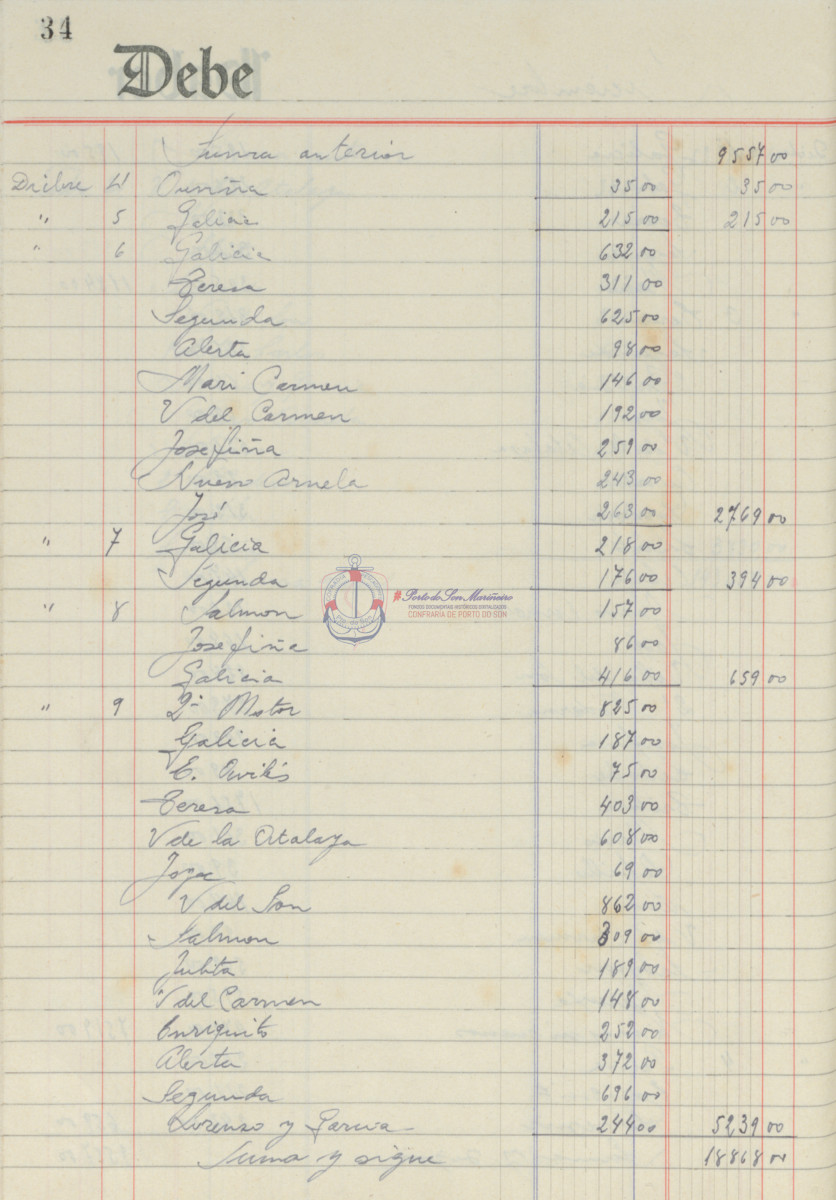 34
Debe
Suma anterior 9557 00
Dicibre 4 Ouniña 35 00 35 00
" 5 Galicia 215 00 215 00
" 6 Galicia 632 00
Teresa 311 00
Segunda 625 00
Alerta 98 00
Mari Carmen 146 00
V del Carmen 192 00
Josefiña 259 00
Nuevo Arnela 243 00
José 263 00 2769 00
" 7 Galicia 218 00
Segunda 176 00 394 00
" 8 Salmon 157 00
#Porto do Son Mariñeiro
FONDOS DOCUMENTAIS HISTÓRICOS DIXITALIZADOS
CONFRARIA DE PORTO DO SON
Josefiña 86 00
Galicia 416 00 659 00
" 9 2º Motor 825 00
Galicia 187 00
E. 75 00
Teresa 403 00
V de la Atalaya 608 00
69 00
V del Son 862 00
Salmon 309 00
Julita 189 00
V del Carmen 148 00
Enriquito 252 00
Alerta 372 00
Segunda 696 00
Lorenzo y Garcia 244 00 5239 00
Suma y sigue 18868 00